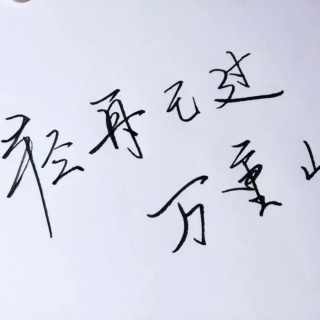 轻舟已过
万重山